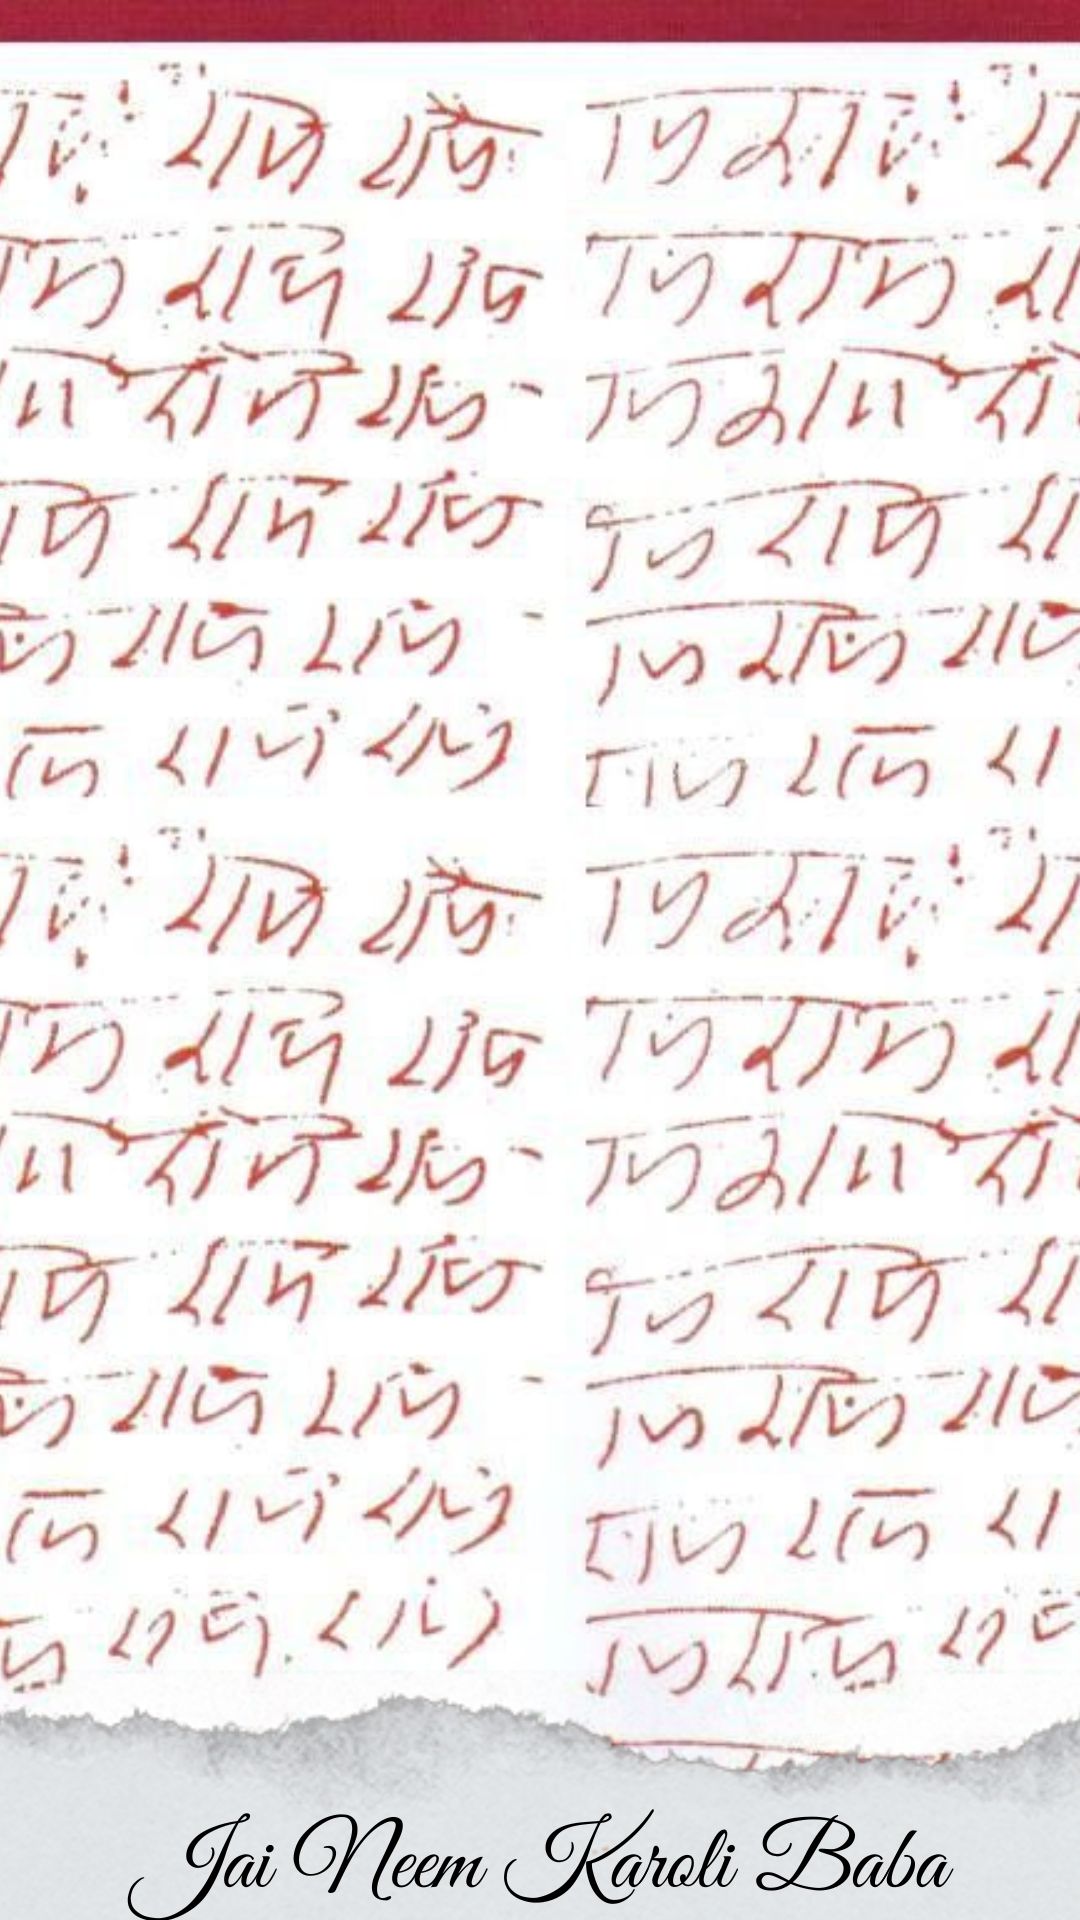 राम राम राम राम राम
राम राम राम राम राम
राम राम राम राम राम
राम राम राम राम राम
राम राम राम राम राम राम
राम राम राम राम राम
राम राम राम राम राम
राम राम राम राम राम
राम राम राम राम राम
राम राम राम राम राम
राम राम राम राम राम राम
राम राम राम राम राम
राम राम राम राम
Jai Neem Karoli Baba